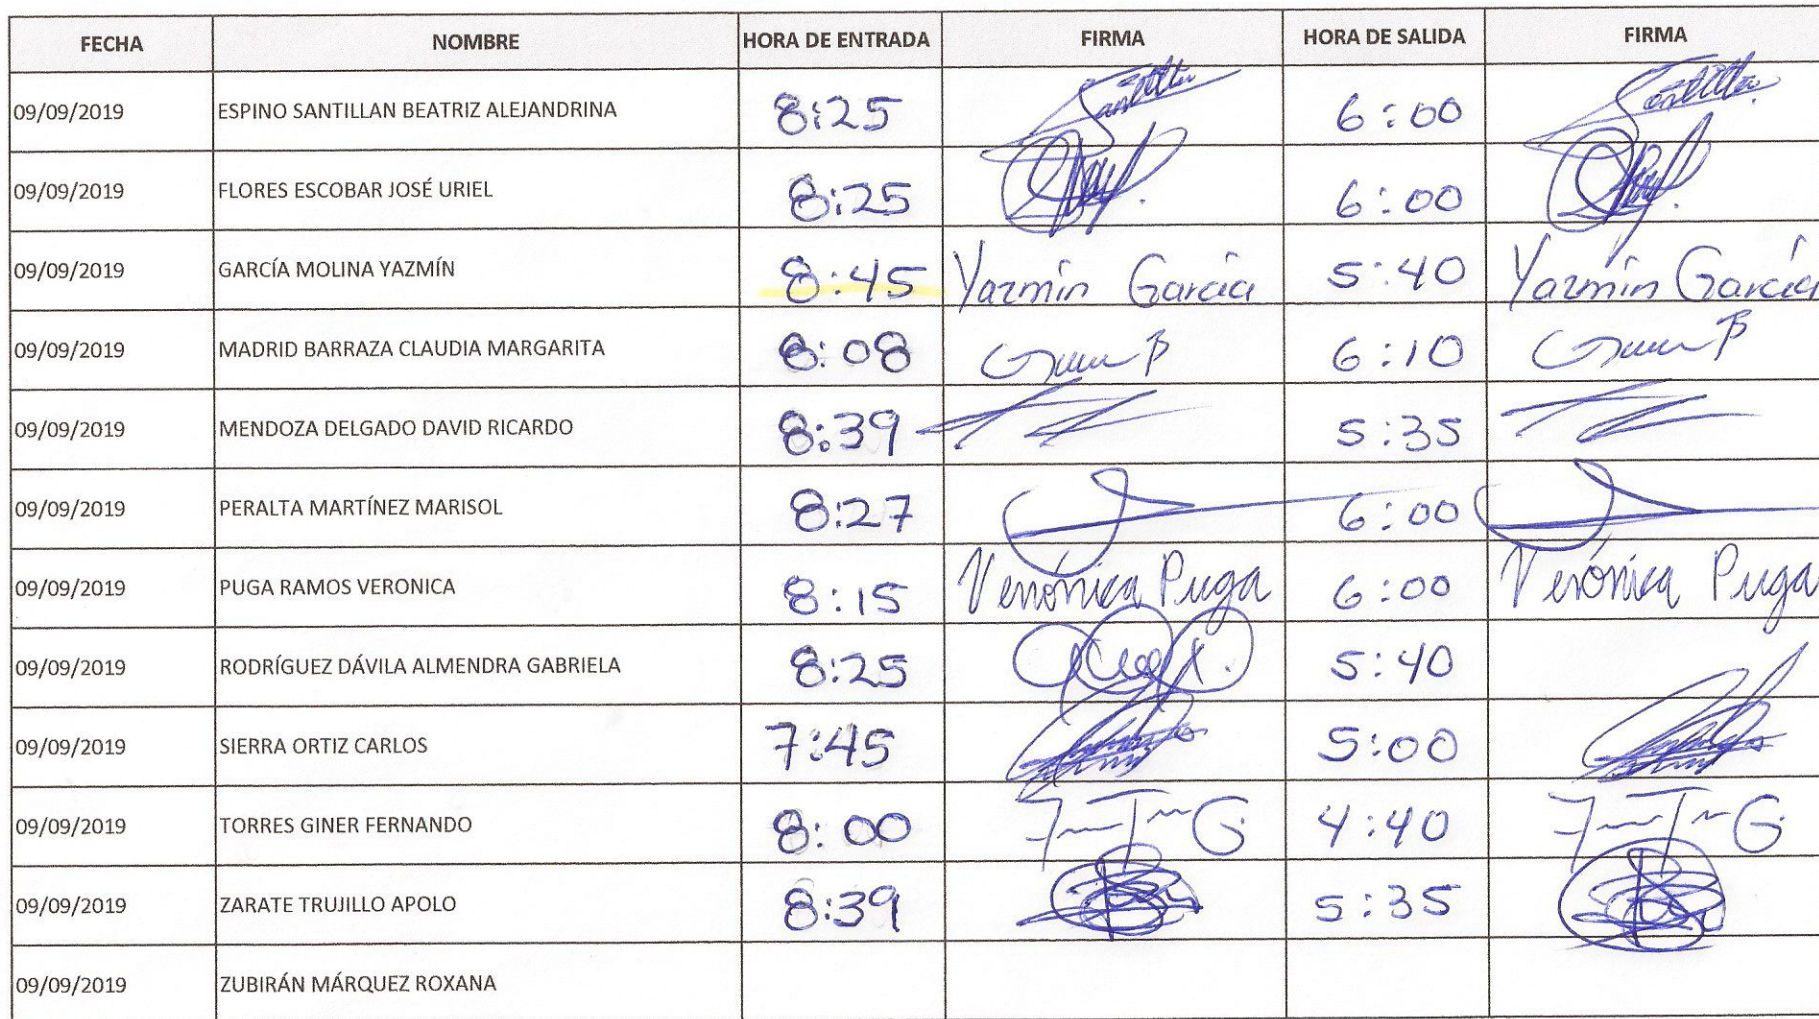 FECHA NOMBRE HORA DE ENTRADA FIRMA HORA DE SALIDA FIRMA
09/09/2019 ESPINO SANTILLAN BEATRIZ ALEJANDRINA 8:25 6:00
09/09/2019 FLORES ESCOBAR JOSÉ URIEL 8:25 6:00
09/09/2019 GARCÍA MOLINA YAZMÍN 8:45 Yazmín García 5:40 Yazmín García
09/09/2019 MADRID BARRAZA CLAUDIA MARGARITA 8:08 6:10
09/09/2019 MENDOZA DELGADO DAVID RICARDO 8:39 5:35
09/09/2019 PERALTA MARTÍNEZ MARISOL 8:27 6:00
09/09/2019 PUGA RAMOS VERONICA 8:15 Verónica Puga 6:00 Verónica Puga
09/09/2019 RODRÍGUEZ DÁVILA ALMENDRA GABRIELA 8:25 5:40
09/09/2019 SIERRA ORTIZ CARLOS 7:45 5:00
09/09/2019 TORRES GINER FERNANDO 8:00 4:40
09/09/2019 ZARATE TRUJILLO APOLO 8:39 5:35
09/09/2019 ZUBIRÁN MÁRQUEZ ROXANA